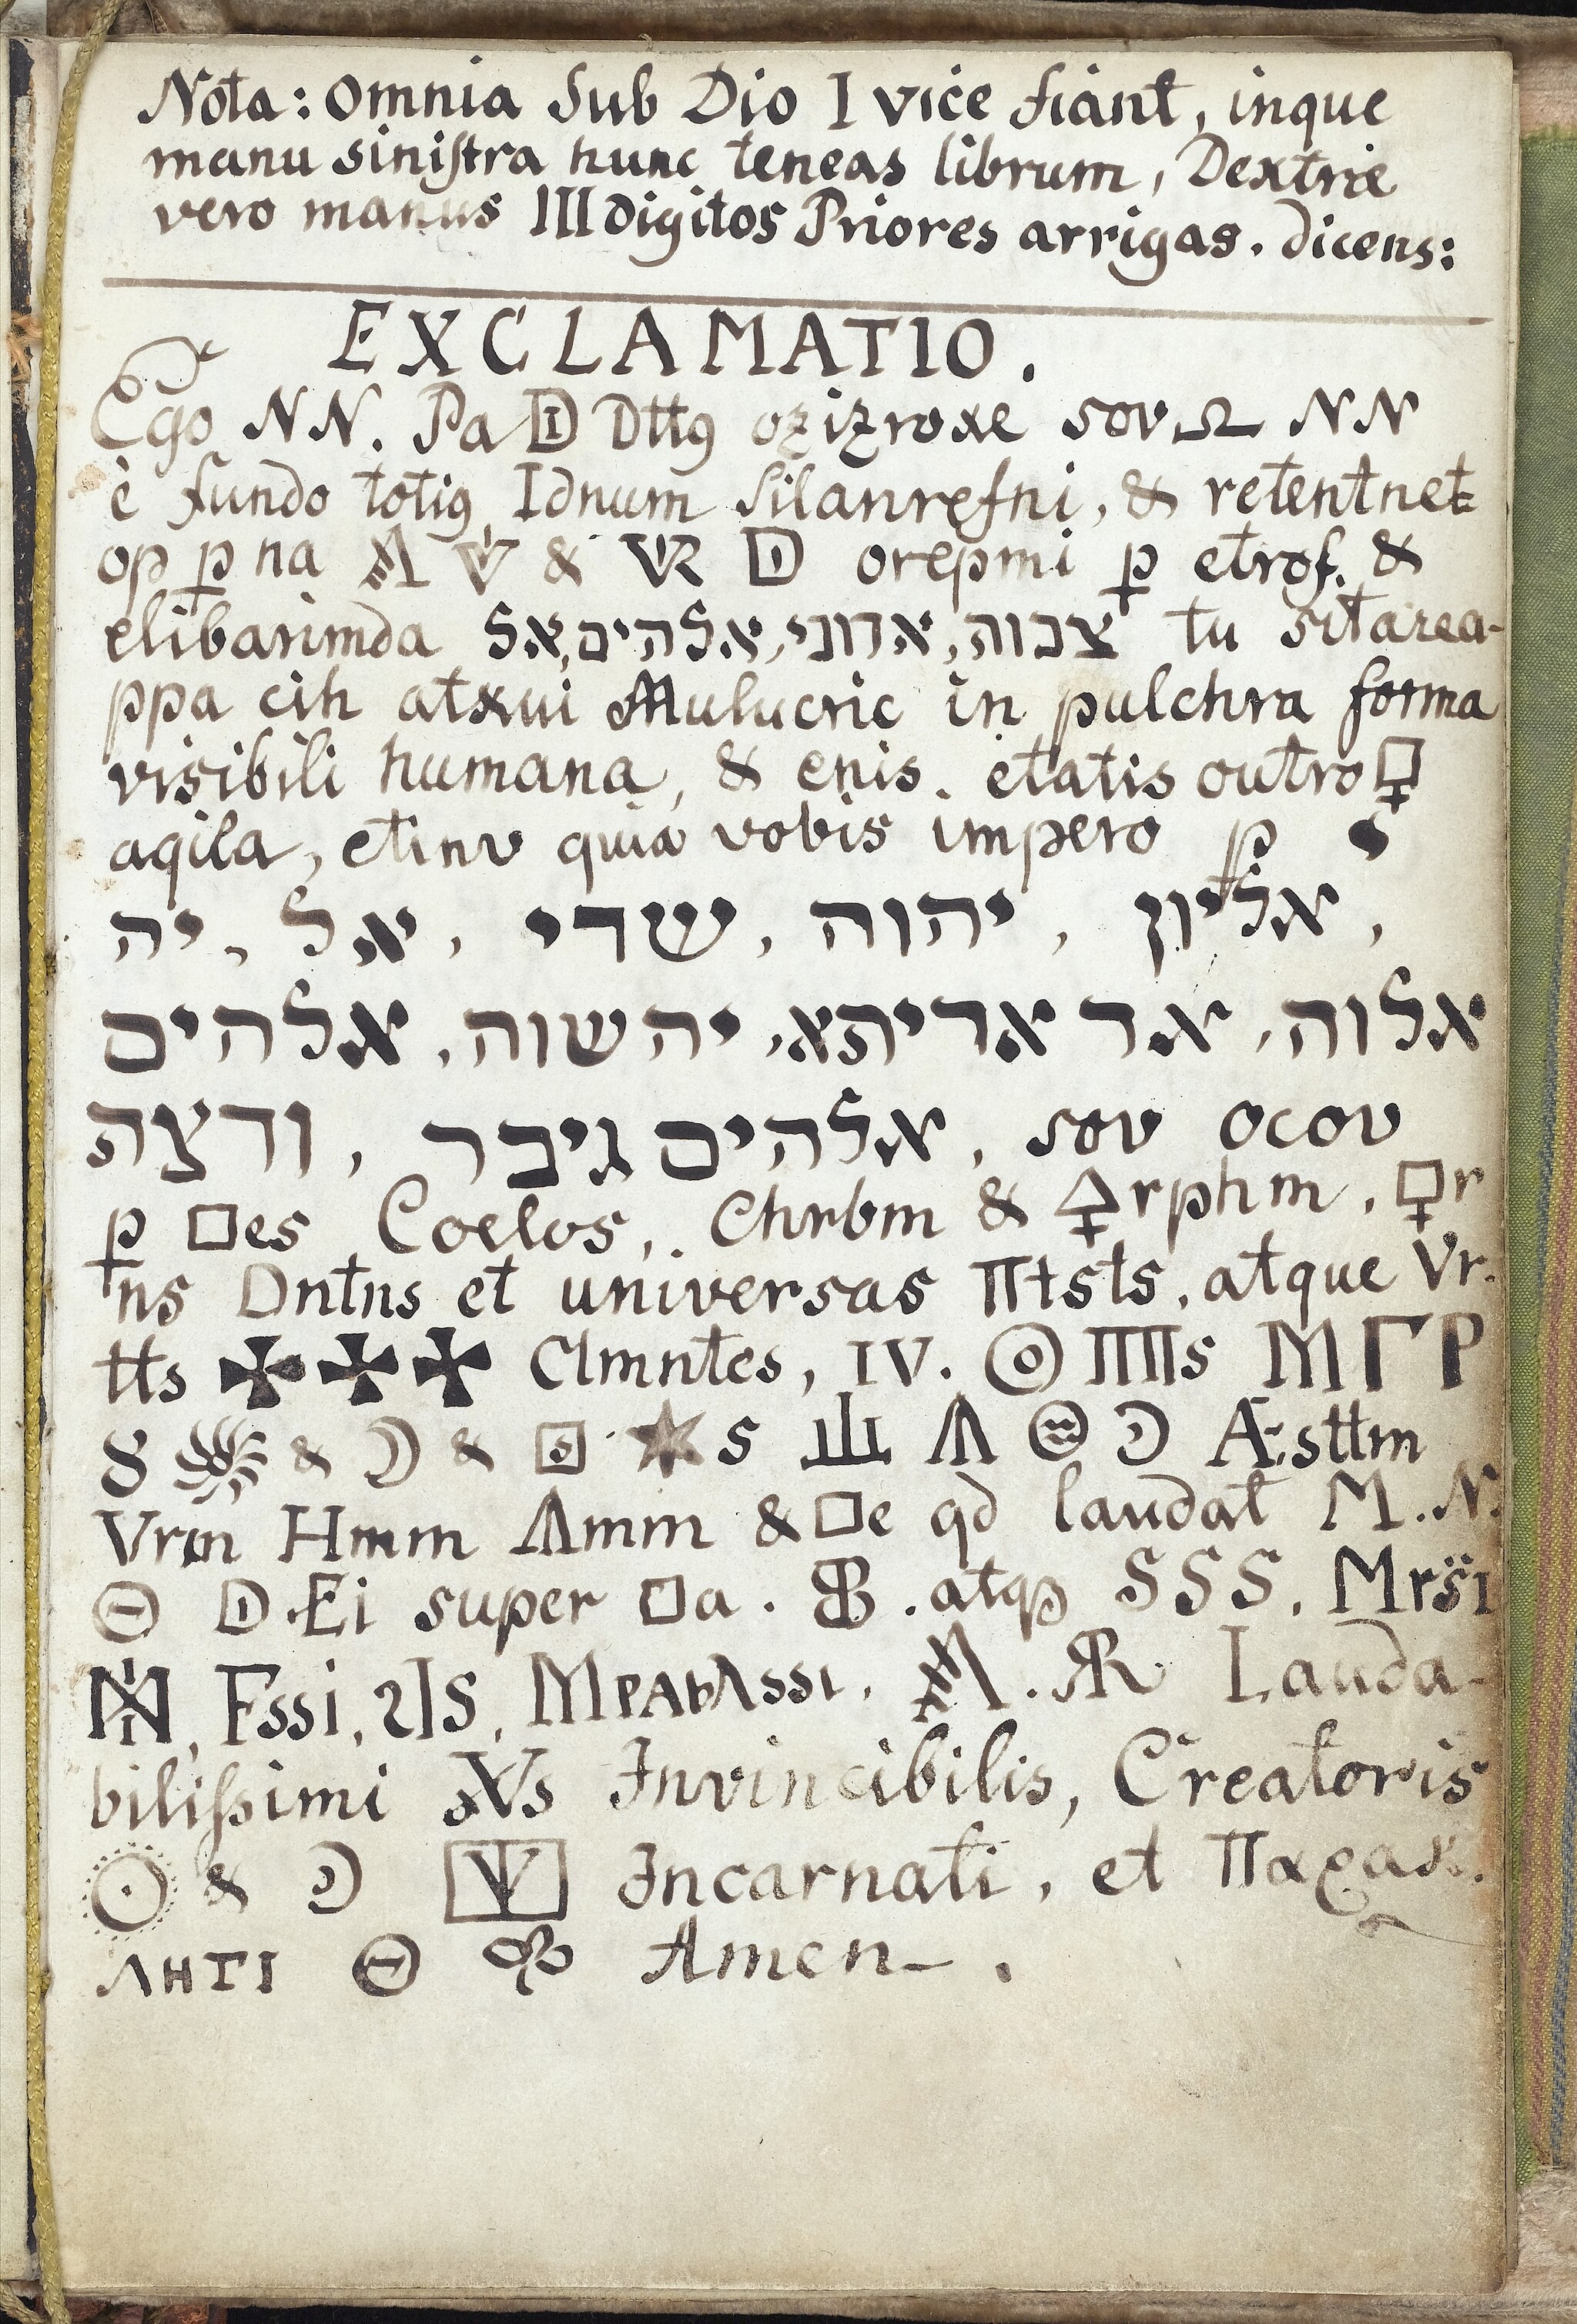 Nota: omnia Sub Dio I vice fiant, inque
manu siniſtra hunc teneas librum, Dextrie
vero manus III digitos Priores arrigas. dicens:
EXCLAMATIO.
Ego NN. Pa Dttꝯ ozizroxe sov Ω NN
è fundo totiꝯ Idnum silanrefni, & retentnet
op p na & orepmi p etrof. &
elibarimda צבוה, אדוני, אלהים, אל tu sitarea-
ppa cih atxui Mulucric in pulchra forma
visibili humana, & enis. etatis outro □
aqila, etinv quia vobis impero p
אליון, יהוה, שדי, אל, יה,
אלוה, אד אריתא, יהשוה, אלהים
sov ocov, אלהים גיבר, ודצה
p □es Coelos, Chrbm & rphm, r
ns Dntns et universas Πtsts, atque Vr.
tts ✠ ✠ ✠ Clmntes, IV. ☉ ΠΠs ΜΓΡ
& ☽ & s Λ Æsttm
Vrm Hmm Λmm & □e qd laudat M. N.
Θ D. Ei super □a. atqꝫ SSS, Mrsi
Essi, ƧIS, ΜΡΑbΛssi. Lauda-
biliſsimi Invincibilis, Creatoris
☉ & ☽ Incarnati, et Παραx.
ΛΗΤΙ Θ Amen.